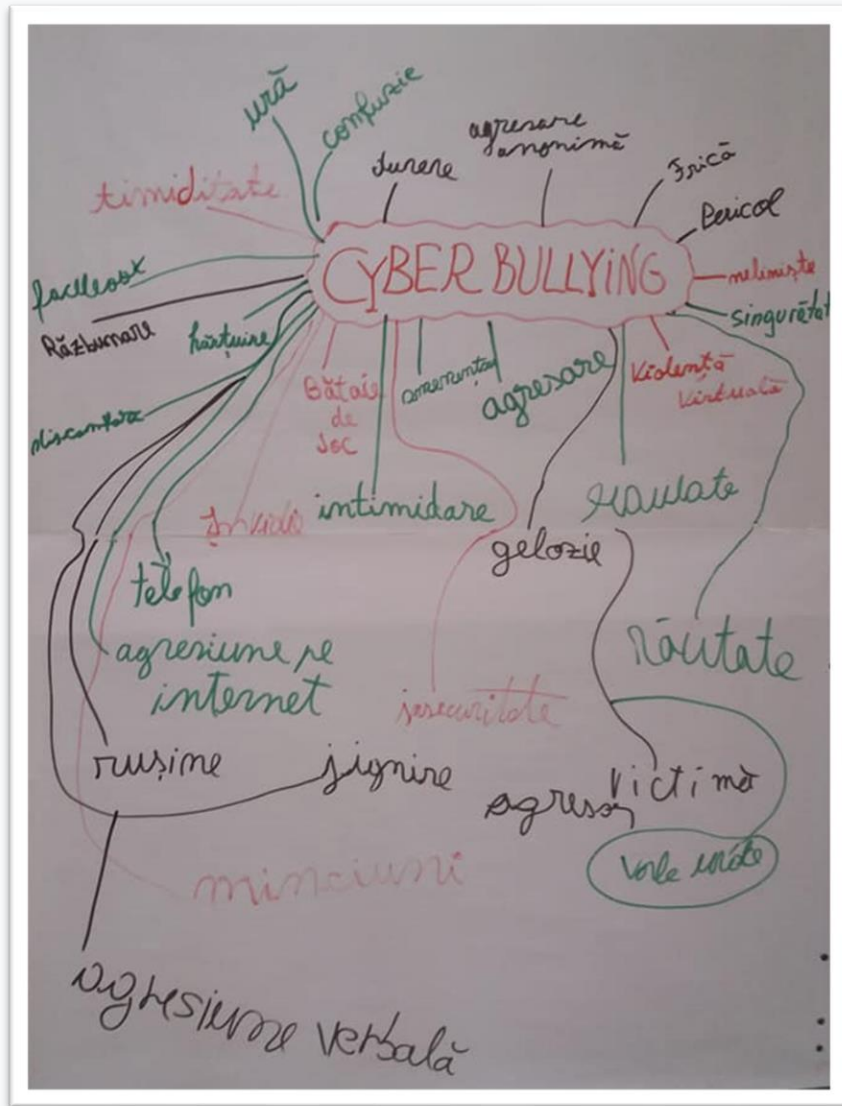 ură
confuzie
durere
agresare
anonimă
Frică
Pericol
timiditate
CYBERBULLYING
neliniște
singurătat
Răzbunare
hărțuire
Bătaie
de
joc
agresare
Violență
Virtuală
intimidare
gelozie
telefon
agresiune pe
internet
insecuritate
răutate
rușine
jignire
victimă
agresor
minciuni
agresiune verbală